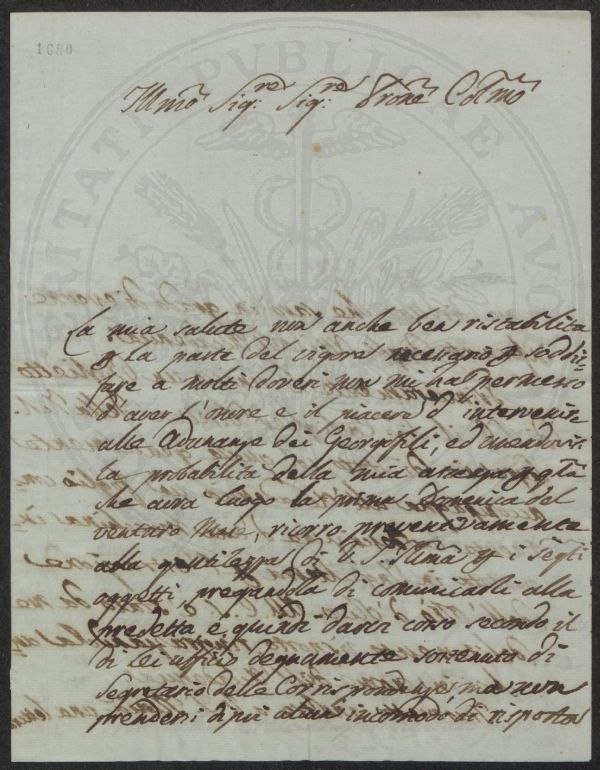 1680
Illmo Sig.re Sig.re Prone Colmo
La mia salute non anche ben ristabilita
p la parte del vigore necessario p soddis=
fare a molti doveri non mi ha permesso
d'aver l'onore e il piacere d'intervenire
alle Adunanze dei Georgofili, ed essendovi
la probabilità della mia assenza p qta
che avrà luogo la prima Domenica del
venturo Mese, ricorro preventivamente
alla gentilezza di V. S. Illma p i segti
oggetti, pregandola di comunicarli alla
predetta e quindi darci corso secondo il
di Lei ufficio degnamente sostenuto di
Segretario delle Corrispondenze, ma non
prendersi di più alcun incomodo di risposta
PVBLICAE